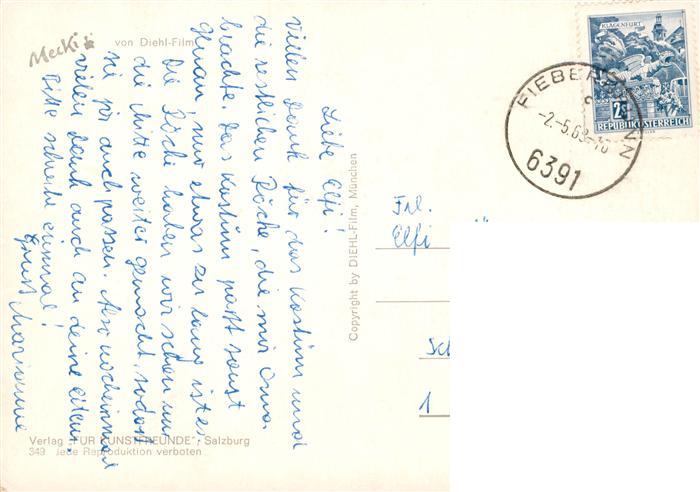 Mecki
von Diehl-Film
Liebe Elfi!
Vielen Dank für das Kostüm und
die restlichen Röcke, die mir Oma
brachte. Das Kostüm paßt sonst
genau, nur etwas zu lang ist es.
Die Röcke haben wir schon um
die Mitte weiter gemacht, sodaß
sie jetzt auch passen. Also nocheinmal
vielen Dank auch an deine Eltern.
Bitte schreib einmal!
Gruß Marianne
Verlag „FÜR KUNSTFREUNDE", Salzburg
349 Jede Reproduktion verboten
Copyright by DIEHL-Film, München
KLAGENFURT
2S
REPUBLIK ÖSTERREICH
FIEBERBRUNN
-2.-5.68-16
6391
Frl.
Elfi
Sc
1